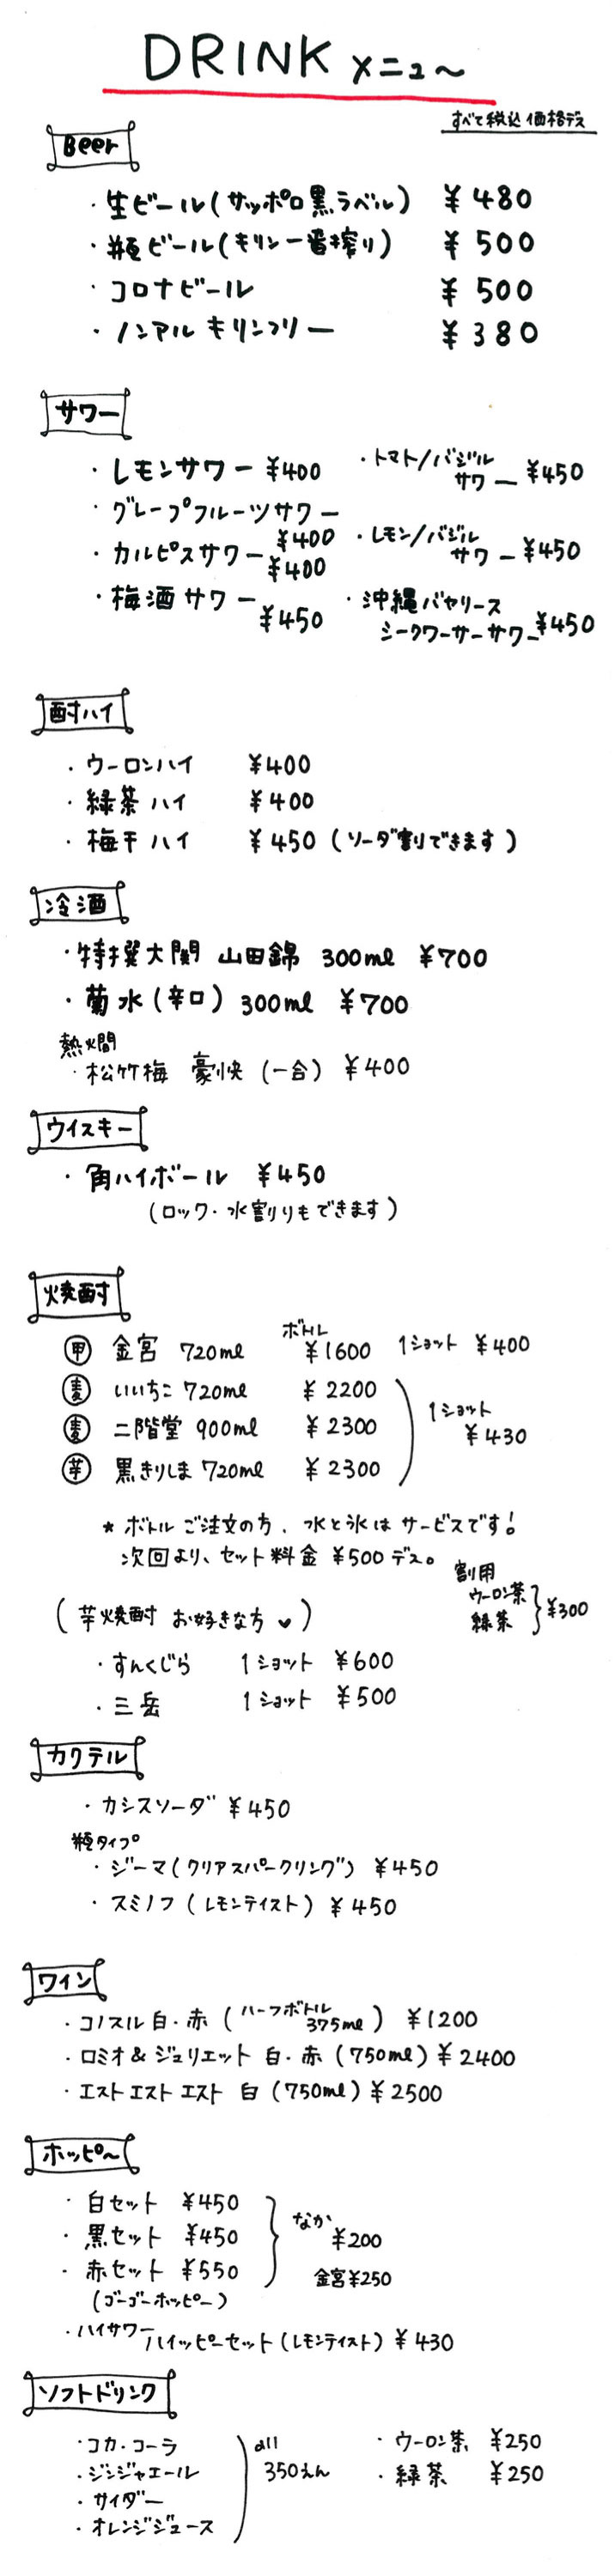 DRINK メニュ〜
すべて税込価格デス
Beer
・生ビール(サッポロ黒ラベル) ¥480
・瓶ビール(キリン一番搾り) ¥500
・コロナビール ¥500
・ノンアル キリンフリー ¥380
サワー
・レモンサワー ¥400
・グレープフルーツサワー ¥400
・カルピスサワー ¥400
・梅酒サワー ¥450
・トマト/バジル
サワー ¥450
・レモン/バジル
サワー ¥450
・沖縄バヤリース
シークワーサーサワー ¥450
酎ハイ
・ウーロンハイ ¥400
・緑茶ハイ ¥400
・梅干ハイ ¥450 (ソーダ割りできます)
冷酒
・特撰大関 山田錦 300ml ¥700
・菊水(辛口) 300ml ¥700
熱燗
・松竹梅 豪快 (一合) ¥400
ウイスキー
・角ハイボール ¥450
(ロック・水割りもできます)
焼酎
ボトル
甲 金宮 720ml ¥1600 1ショット ¥400
麦 いいちこ 720ml ¥2200
麦 二階堂 900ml ¥2300
芋 黒きりしま 720ml ¥2300
1ショット
¥430
* ボトルご注文の方、水と氷はサービスです!
次回より、セット料金 ¥500デス。
割用
ウーロン茶
緑茶
¥300
(芋焼酎 お好きな方♥)
・すんくじら 1ショット ¥600
・三岳 1ショット ¥500
カクテル
・カシスソーダ ¥450
瓶タイプ
・ジーマ(クリアスパークリング) ¥450
・スミノフ(レモンテイスト) ¥450
ワイン
・コノスル 白・赤 (ハーフボトル 375ml) ¥1200
・ロミオ&ジュリエット 白・赤 (750ml) ¥2400
・エスト エスト エスト 白 (750ml) ¥2500
ホッピ〜
・白セット ¥450
・黒セット ¥450
・赤セット ¥550
(ゴーゴーホッピー)
なか
¥200
金宮¥250
・ハイサワー
ハイッピーセット(レモンテイスト) ¥430
ソフトドリンク
・コカ・コーラ
・ジンジャエール
・サイダー
・オレンジジュース
all
350えん
・ウーロン茶 ¥250
・緑茶 ¥250